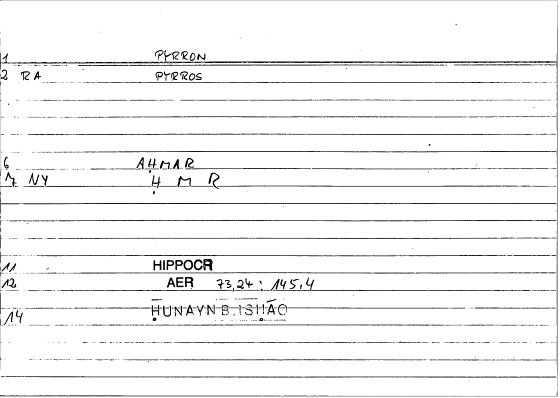 1 PYRRON
2 RA PYRROS
6 AḤMAR
7 NY Ḥ M R
11 HIPPOCR
12 AER 73,24 : 145,4
14 ḤUNAYN B. ISḤĀQ